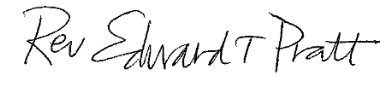 Rev Edward T Pratt